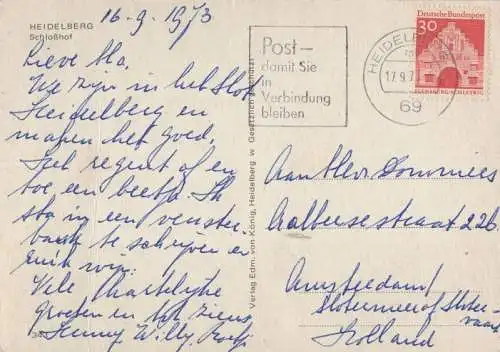 HEIDELBERG
Schloßhof
16-9-1973
Lieve Ma.
We zijn in het Slot
Heidelberg en
maken het goed.
Het regent af en
toe een beetje. Ik
sta in een venster
bank te schrijven en
Vele Hartelijke
groeten en tot ziens
Henny Willy
Verlag Edm. von König, Heidelberg
Gesetzlich geschützt
Post –
damit Sie
in
Verbindung
bleiben
HEIDELB
17.9.7
69
Deutsche Bundespost
30
Aan
Aalbersestraat 226.
Amsterdam
Slotermeer
Holland